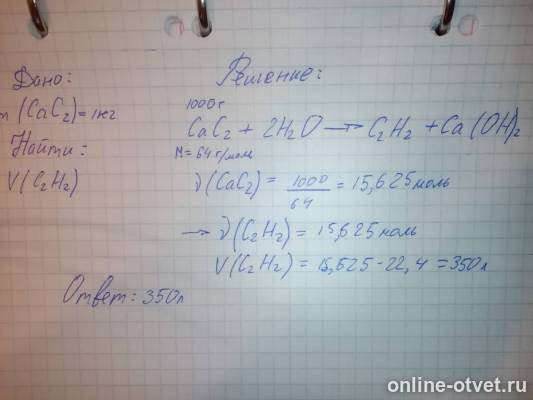 Дано:
m (CaC2) = 1кг
Найти:
V (C2H2)
Решение:
1000 г
CaC2 + 2H2O → C2H2 + Ca(OH)2
M = 64 г/моль
ν(CaC2) = 1000/64 = 15,625 моль
→ ν(C2H2) = 15,625 моль
V(C2H2) = 15,625 · 22,4 = 350 л
Ответ: 350 л
online-otvet.ru